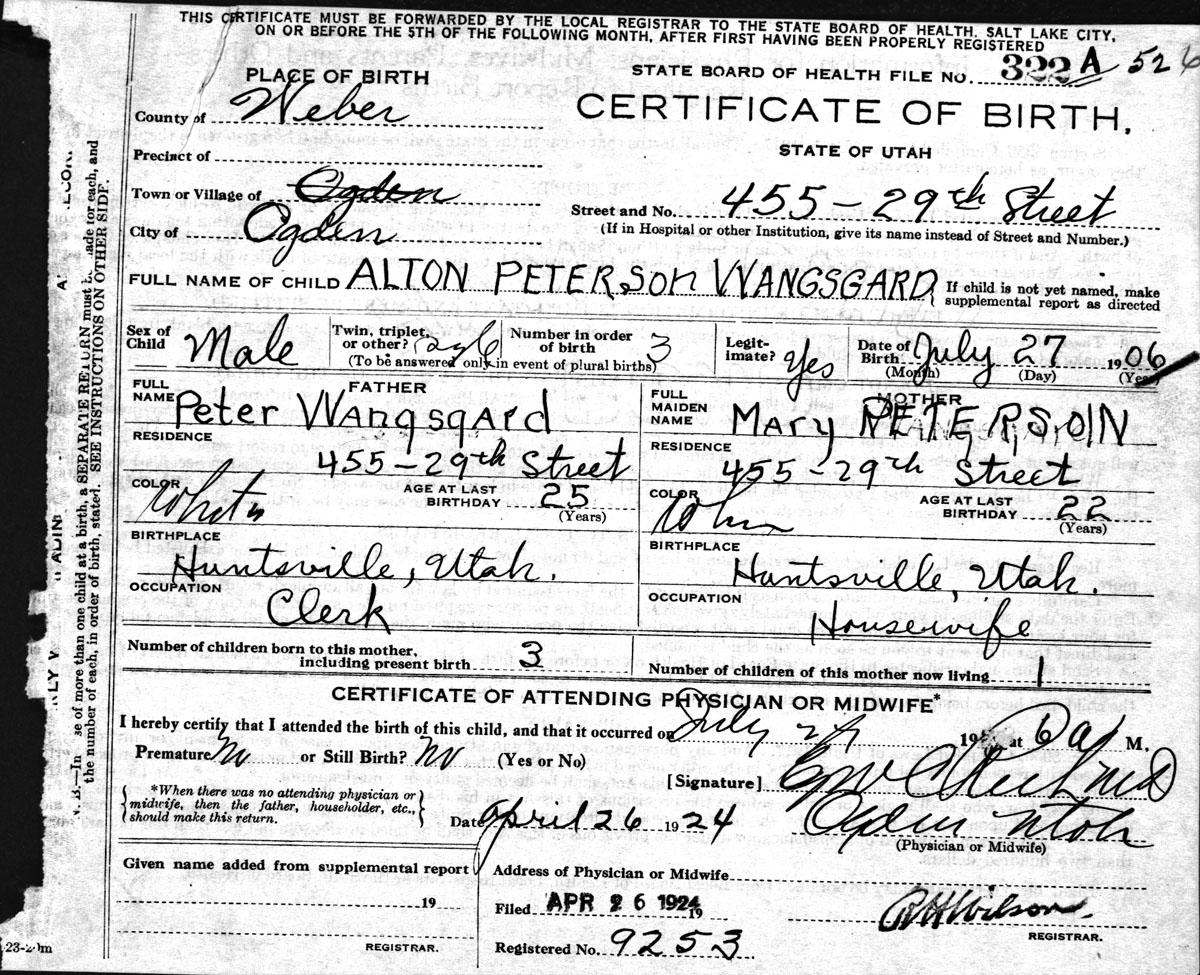 THIS CERTIFICATE MUST BE FORWARDED BY THE LOCAL REGISTRAR TO THE STATE BOARD OF HEALTH, SALT LAKE CITY,
ON OR BEFORE THE 5TH OF THE FOLLOWING MONTH, AFTER FIRST HAVING BEEN PROPERLY REGISTERED
PLACE OF BIRTH
STATE BOARD OF HEALTH FILE NO. 322 A 526
County of Weber
CERTIFICATE OF BIRTH.
Precinct of
STATE OF UTAH
Town or Village of Ogden
Street and No. 455-29th Street
City of Ogden
(If in Hospital or other Institution, give its name instead of Street and Number.)
FULL NAME OF CHILD ALTON PETERSON WANGSGARD
If child is not yet named, make
supplemental report as directed
Sex of Child Male
Twin, triplet, or other?
Number in order of birth 3
(To be answered only in event of plural births)
Legitimate? Yes
Date of Birth July 27 1906
(Month) (Day) (Year)
FATHER
FULL NAME Peter Wangsgard
RESIDENCE
455-29th Street
COLOR
AGE AT LAST BIRTHDAY 25
(Years)
BIRTHPLACE
Huntsville, Utah.
OCCUPATION
Clerk
MOTHER
FULL MAIDEN NAME Mary PETERSON
RESIDENCE
455-29th Street
COLOR
AGE AT LAST BIRTHDAY 22
(Years)
BIRTHPLACE
Huntsville, Utah.
OCCUPATION
Housewife
Number of children born to this mother,
including present birth 3
Number of children of this mother now living 1
CERTIFICATE OF ATTENDING PHYSICIAN OR MIDWIFE*
I hereby certify that I attended the birth of this child, and that it occurred on July 27 19 at 6 a M.
Premature No or Still Birth? No (Yes or No)
[Signature]
*When there was no attending physician or
midwife, then the father, householder, etc.,
should make this return.
Date April 26 1924
Ogden Utah
(Physician or Midwife)
Given name added from supplemental report
Address of Physician or Midwife
19
Filed APR 26 1924 19
Wilson
REGISTRAR.
REGISTRAR.
Registered No. 9253
of more than one child at a birth, a SEPARATE RETURN must be made for each, and
the number of each, in order of birth, stated. SEE INSTRUCTIONS ON OTHER SIDE.